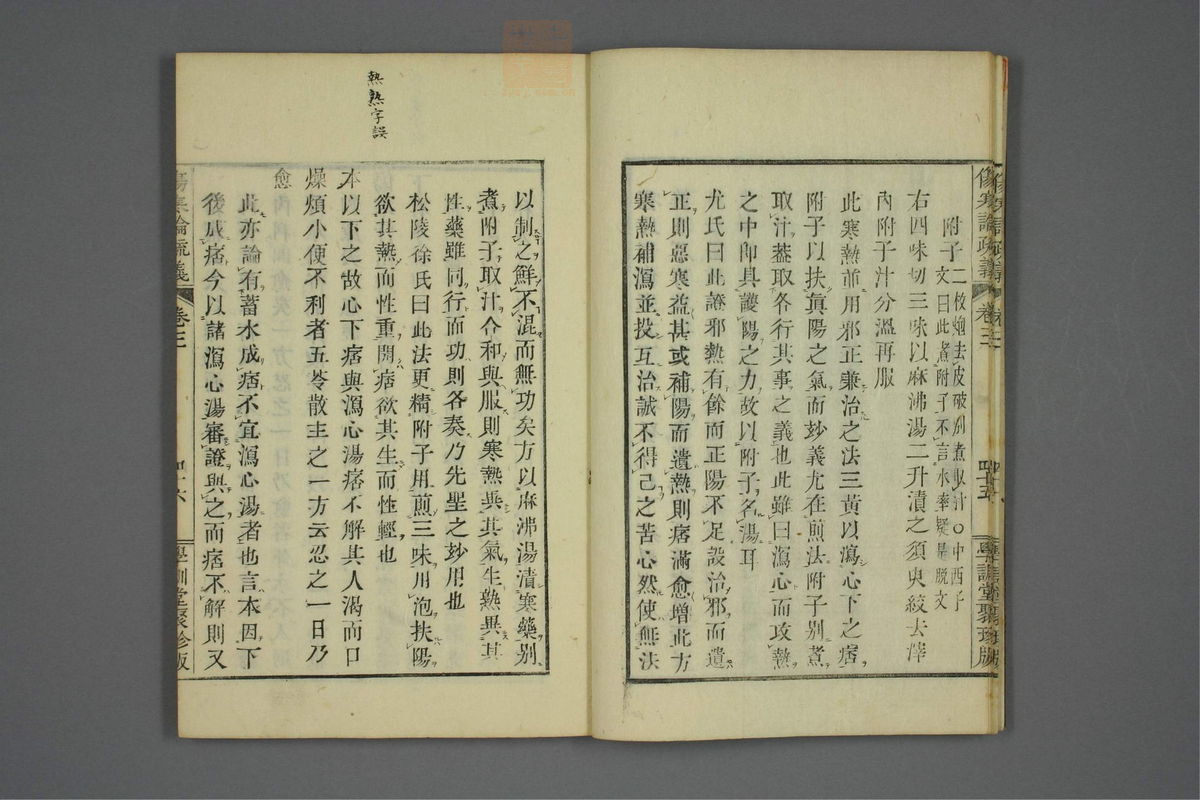 傷寒論疏義 卷三
附子二枚炮去皮破別煮取汁○中西子
文曰此煮附子不言水率疑是脫文
右四味切三味以麻沸湯二升漬之須臾絞去滓
內附子汁分溫再服
此寒熱並用邪正兼治之法三黃以瀉心下之痞
附子以扶眞陽之氣而玅義尤在煎法附子別煮
取汁葢取各行其事之義也此雖曰瀉心而攻熱
之中卽具護陽之力故以附子名湯耳
尤氏曰此證邪熱有餘而正陽不足設治邪而遺
正則惡寒益甚或補陽而遺熱則痞滿愈增此方
寒熱補瀉並投互治誠不得已之苦心然使無法
熱熟字誤
以制之鮮不混而無功矣方以麻沸湯漬寒藥別
煮附子取汁合和與服則寒熱異其氣生熱異其
性藥雖同行而功則各奏乃先聖之玅用也
松陵徐氏曰此法更精附子用煎三味用泡扶陽
欲其熱而性重開痞欲其生而性輕也
本以下之故心下痞與瀉心湯痞不解其人渴而口
燥煩小便不利者五苓散主之一方云忍之一日乃
愈
此亦論有蓄水成痞不宜瀉心湯者也言本因下
後成痞今以諸瀉心湯審證與之而痞不解則又
傷寒論疏義 卷三 四十六 學訓堂聚珍版